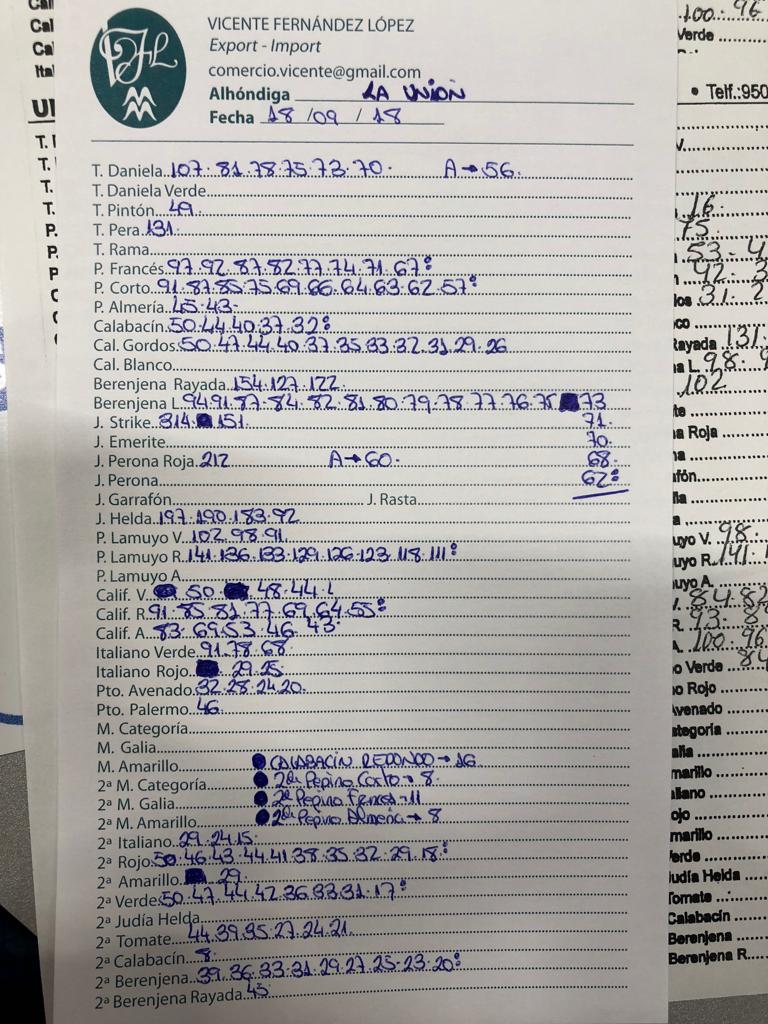 VICENTE FERNÁNDEZ LÓPEZ
Export - Import
comercio.vicente@gmail.com
Alhóndiga LA UNION
Fecha 18 / 09 / 18
T. Daniela 107. 81. 78. 75. 73. 70. A→56.
T. Daniela Verde
T. Pintón 49.
T. Pera 131.
T. Rama
P. Francés 97. 92. 87. 82. 77. 74. 71. 67:
P. Corto 91. 87. 85. 75. 69. 66. 64. 63. 62. 57:
P. Almería 45. 43.
Calabacín 50. 44. 40. 37. 32:
Cal. Gordos 50. 47. 44. 40. 37. 35. 33. 32. 31. 29. 26
Cal. Blanco
Berenjena Rayada 154. 127. 122.
Berenjena L. 94. 91. 87. 84. 82. 81. 80. 79. 78. 77. 76. 75 73
J. Strike 314. 151. 71.
J. Emerite 70.
J. Perona Roja 212 A→60. 68.
J. Perona 62:
J. Garrafón J. Rasta
J. Helda 197. 190. 183. 92
P. Lamuyo V. 102. 98. 91.
P. Lamuyo R. 141. 136. 133. 129. 126. 123. 118. 111:
P. Lamuyo A
Calif. V. 50. 48. 44.
Calif. R. 91. 85. 81. 77. 69. 64. 55:
Calif. A. 83. 69. 53. 46. 43.
Italiano Verde 91. 78. 68
Italiano Rojo 29. 25.
Pto. Avenado 32. 28. 24. 20.
Pto. Palermo 46.
M. Categoría
M. Galia
M. Amarillo CALABACÍN REDONDO→16
2ª M. Categoría 2da Pepino Corto→8.
2ª M. Galia 2da Pepino Francés→11
2ª M. Amarillo 2da Pepino Almería→8
2ª Italiano 29. 24. 15.
2ª Rojo 50. 46. 43. 44. 41. 38. 35. 32. 29. 18:
2ª Amarillo 29.
2ª Verde 50. 47. 44. 42. 36. 33. 31. 17:
2ª Judía Helda
2ª Tomate 44. 39. 35. 27. 24. 21.
2ª Calabacín 8.
2ª Berenjena 39. 36. 33. 31. 29. 27. 25. 23. 20:
2ª Berenjena Rayada 45.